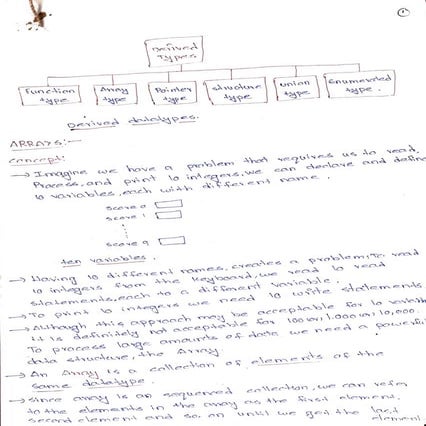 1
Derived
Types
Function
type
Array
type
Pointer
type
Structure
type
Union
type
Enumerated
type.
Derived datatypes.
ARRAYS:-
Concept:
→ Imagine we have a problem that requires us to read,
Process, and print 10 integers, we can declare and define
10 variables, each with different name.
score 0
score 1
score 9
ten variables.
→ Having 10 different names, creates a problem, To read
10 integers from the keyboard, we read 10 read
statements, each to a different variable.
→ To print 10 integers we need 10 write statements
→ Although this approach may be acceptable for 10 variable
it is definitely not acceptable for 100 or 1,000 or 10,000.
To process large amounts of data we need a powerful
data structure, the Array
→ An Array is a collection of elements of the
same datatype.
→ Since array is an sequenced collection, we can refer
to the elements in the array as the first element,
second element and so on until we get the last
element.